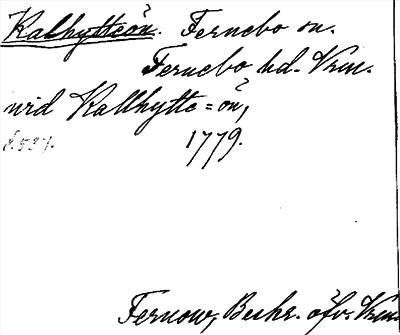 Kalhytteön. Fernebo sn.
Fernebo hd. Vrm.
vid Kallhytte=ön,
s. 537. 1779.
Fernow, Beskr. öfv. Vrm.